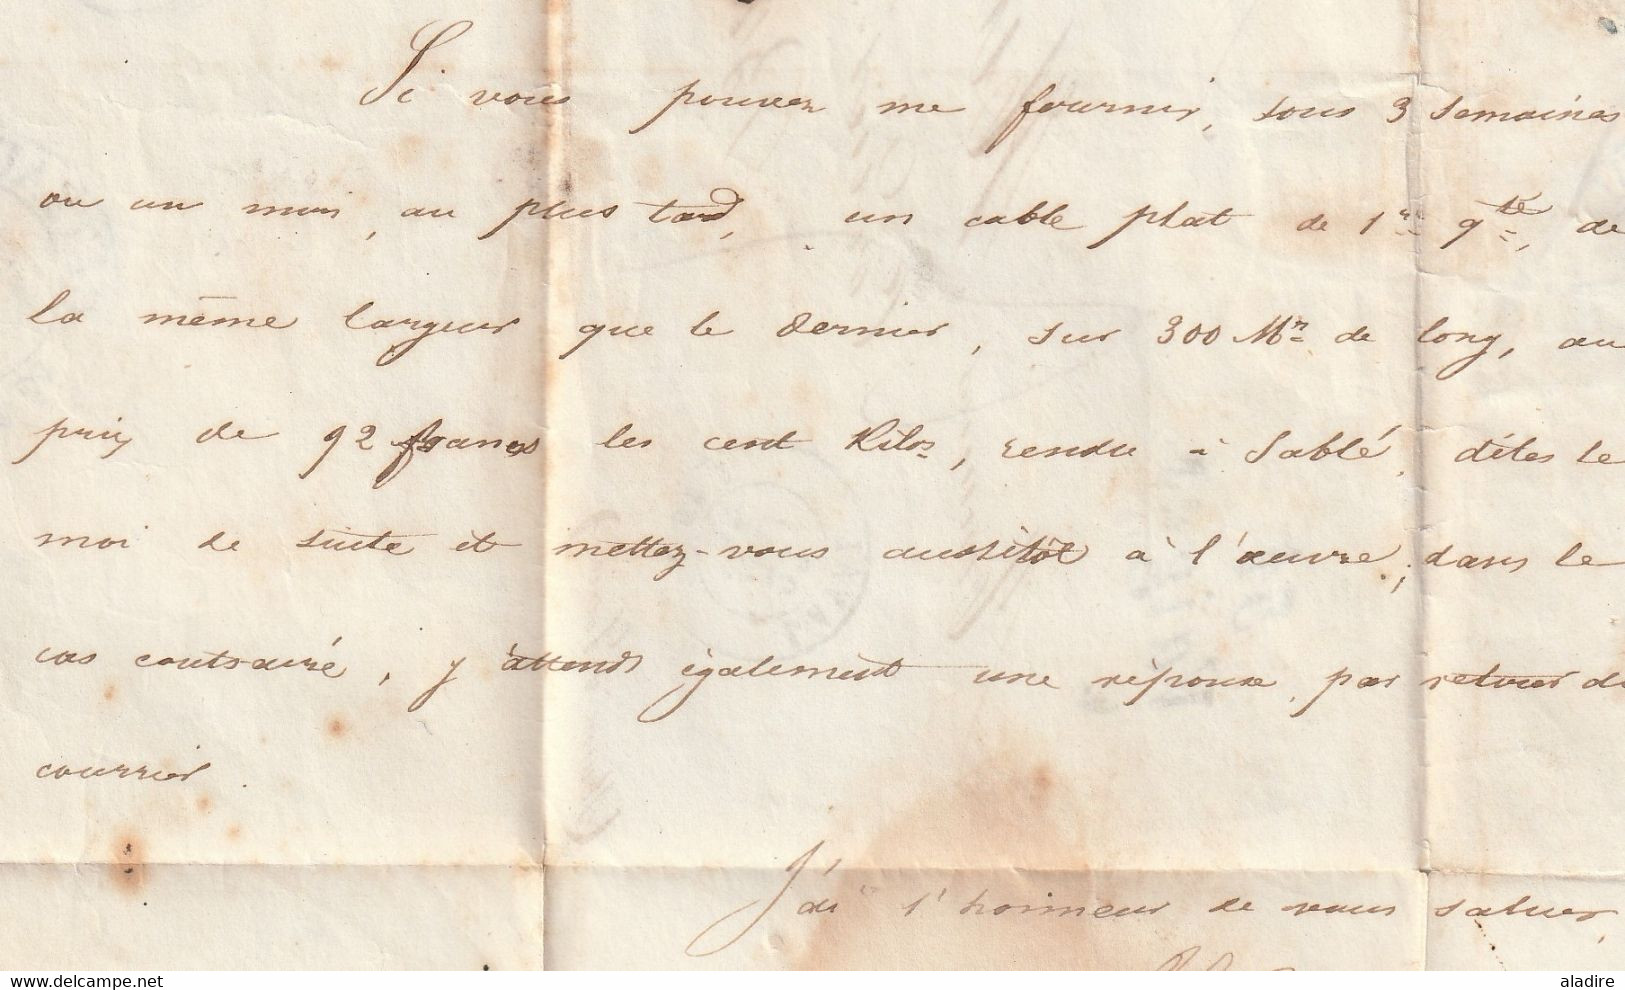 Si vous pouvez me fournir, sous 3 semaines
ou un mois, au plus tard, un cable plat de 1re qté, de
la même largeur que le dernier, sur 300 Mes de long, au
prix de 92 francs les cent Kilos, rendu à Sablé, dites le
moi de suite et mettez-vous aussitôt à l'œuvre; dans le
cas contraire, j'attends également une réponse, par retour du
courrier.
J'ai l'honneur de vous saluer,
aladire